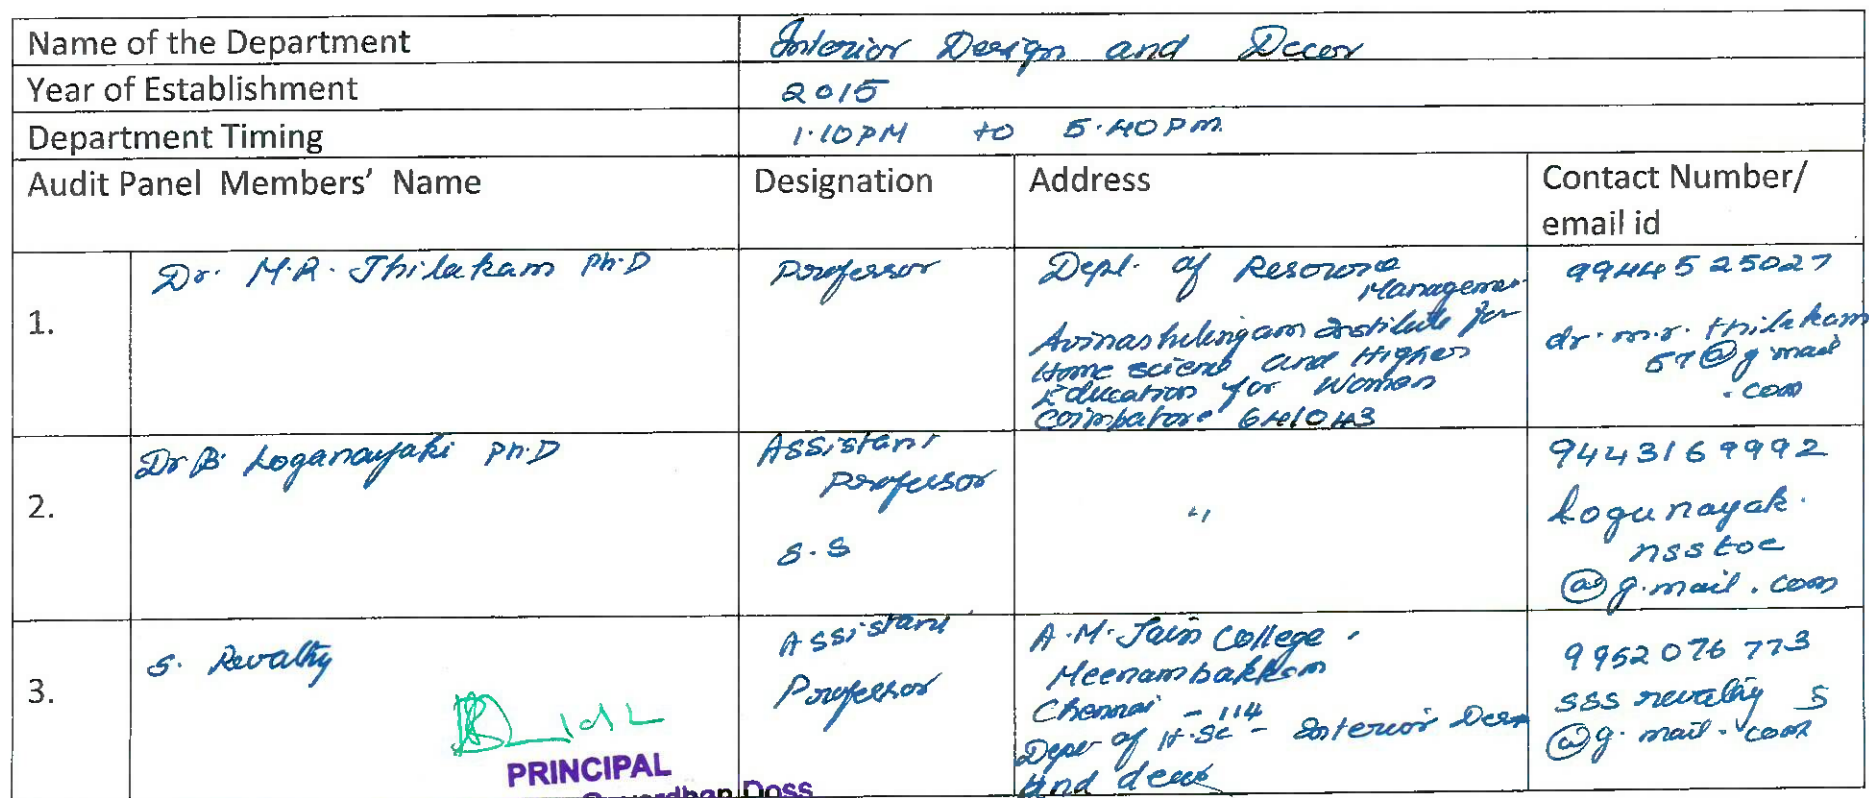 Name of the Department Interior Design and Decor
Year of Establishment 2015
Department Timing 1.10PM to 5.40PM.
Audit Panel Members' Name Designation Address Contact Number/
email id
1.
Dr. M.R. Thilakam Ph.D
Professor
Dept. of Resource
Management
Avinashilingam Institute for
Home science and Higher
Education for Women
Coimbatore 641043
9944525027
dr.m.r.thilakam
57@gmail
.com
2.
Dr B. Loganayaki Ph.D
Assistant
Professor
S.S
"
9443169992
logunayak.
nsstoc
@g.mail.com
3.
S. Revathy
Assistant
Professor
A.M. Jain College.
Meenambakkam
Chennai - 114
Dept of H.Sc - Interior Design
and decor
9952076773
sss revathy S
@g.mail.com
PRINCIPAL
Doss